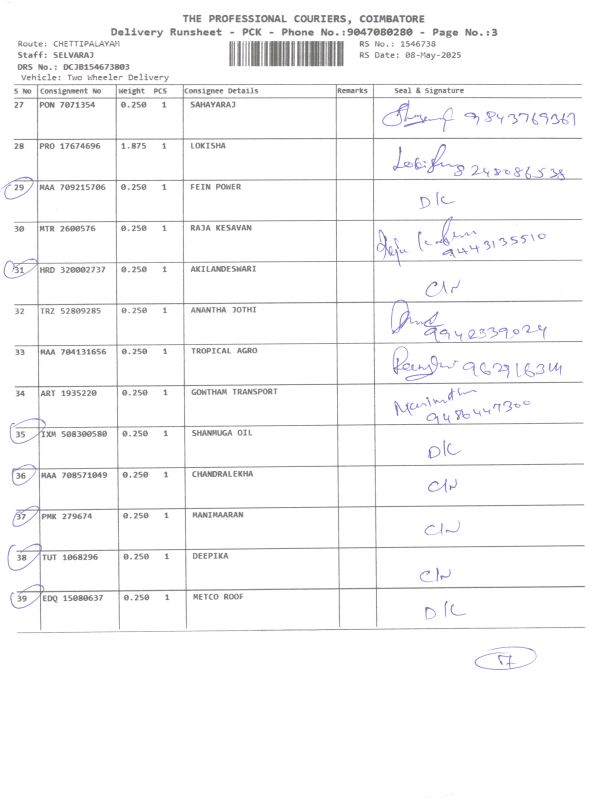 THE PROFESSIONAL COURIERS, COIMBATORE
Delivery Runsheet - PCK - Phone No.:9047080280 - Page No.:3
Route: CHETTIPALAYAM RS No.: 1546738
Staff: SELVARAJ RS Date: 08-May-2025
DRS No.: DCJB154673803
Vehicle: Two Wheeler Delivery
S No Consignment No Weight PCS Consignee Details Remarks Seal & Signature
27 PON 7071354 0.250 1 SAHAYARAJ 9843769367
28 PRO 17674696 1.875 1 LOKISHA 8248086538
29 MAA 709215706 0.250 1 FEIN POWER D/C
30 MTR 2600576 0.250 1 RAJA KESAVAN 9443135510
31 HRD 320002737 0.250 1 AKILANDESWARI C/N
32 TRZ 52809285 0.250 1 ANANTHA JOTHI 9942339024
33 MAA 704131656 0.250 1 TROPICAL AGRO
34 ART 1935220 0.250 1 GOWTHAM TRANSPORT Marimuthu 9486447300
35 IXM 508300580 0.250 1 SHANMUGA OIL D/C
36 MAA 708571049 0.250 1 CHANDRALEKHA C/N
37 PMK 279674 0.250 1 MANIMAARAN C/N
38 TUT 1068296 0.250 1 DEEPIKA C/N
39 EDQ 15080637 0.250 1 METCO ROOF D/C
17